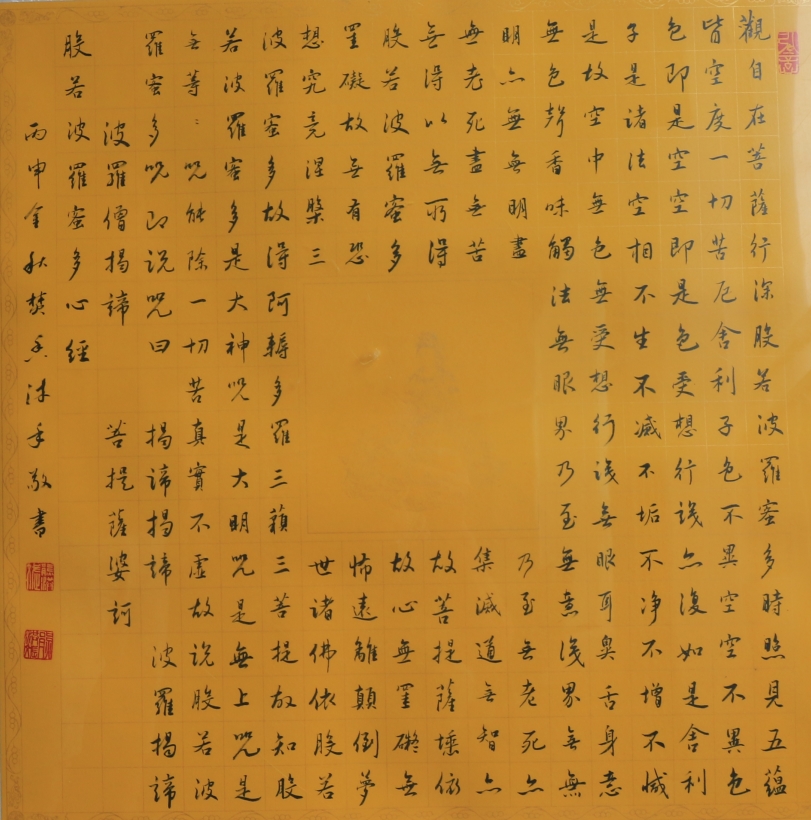 觀自在菩薩行深般若波羅蜜多時照見五蘊
皆空度一切苦厄舍利子色不異空空不異色
色即是空空即是色受想行識亦復如是舍利
子是諸法空相不生不滅不垢不净不增不減
是故空中無色無受想行識無眼耳鼻舌身意
無色聲香味觸法無眼界乃至無意識界無無
明亦無無明盡 乃至無老死亦
無老死盡無苦 集滅道無智亦
無得以無所得 故菩提薩埵依
般若波羅蜜多 故心無罣礙無
罣礙故無有恐 怖遠離顛倒夢
想究竟涅槃三 世諸佛依般若
波羅蜜多故得阿耨多羅三藐三菩提故知般
若波羅蜜多是大神呪是大明呪是無上呪是
無等:呪能除一切苦真實不虛故說般若波
羅蜜多呪即說呪曰 揭諦揭諦 波羅揭諦
波羅僧揭諦 菩提薩婆訶
般若波羅蜜多心經
丙申金秋焚香沐手敬書